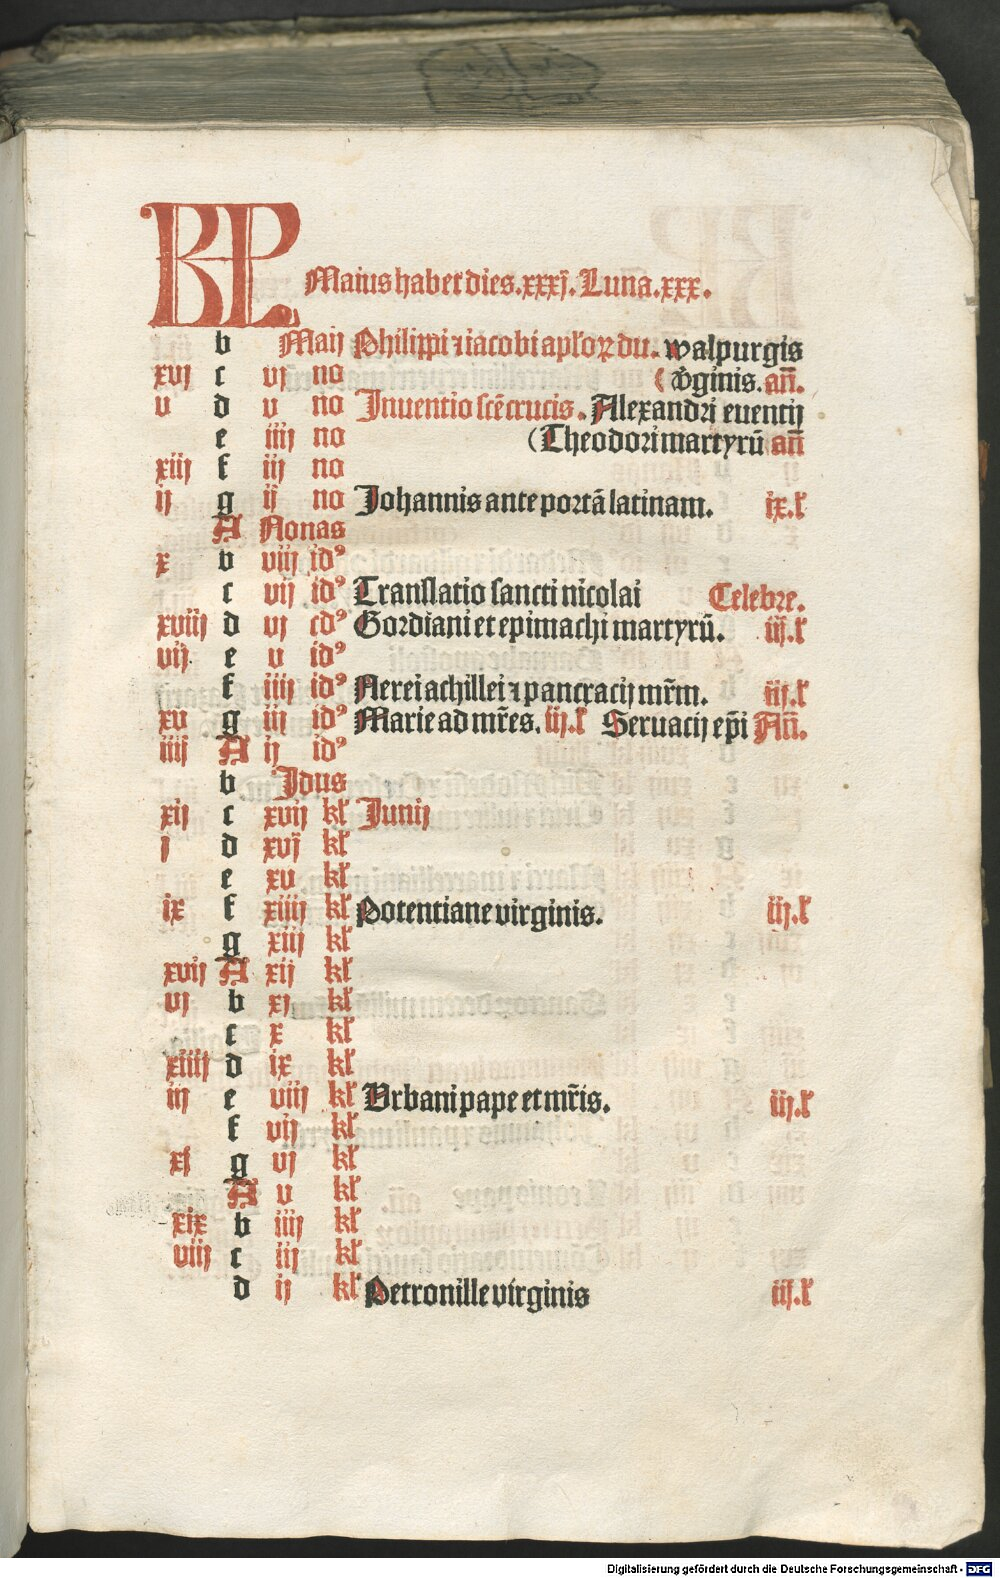 KL Maius habet dies .xxxj. Luna .xxx.
b Maij Philippi ⁊ iacobi apl'oꝝ du. walpurgis
xvj c vj no v̓ginis. añ.
v d v no Inuentio scē crucis. Alexandri euentij
e iiij no (Theodori martyrū añ
xiij f iij no
ij g ij no Johannis ante portā latinam. ix.l'
A Nonas
x b viij idꝰ
c vij idꝰ Translatio sancti nicolai Celebre.
xviij d vj idꝰ Gordiani et epimachi martyrū. iij.l'
vij e v idꝰ
f iiij idꝰ Nerei achillei ⁊ pancracij mr̄m. iij.l'
xv g iij idꝰ Marie ad mr̄es. iij.l' Seruacij ep̄i Añ.
iiij A ij idꝰ
b Idus
xij c xvij kl' Junij
j d xvj kl'
e xv kl'
ix f xiiij kl' Potentiane virginis. iij.l'
g xiij kl'
xvij A xij kl'
vj b xj kl'
c x kl'
xiiij d ix kl'
iij e viij kl' Urbani pape et mr̄is. iij.l'
f vij kl'
xj g vj kl'
A v kl'
xix b iiij kl'
viij c iij kl'
d ij kl' Petronille virginis iij.l'
Digitalisierung gefördert durch die Deutsche Forschungsgemeinschaft - DFG